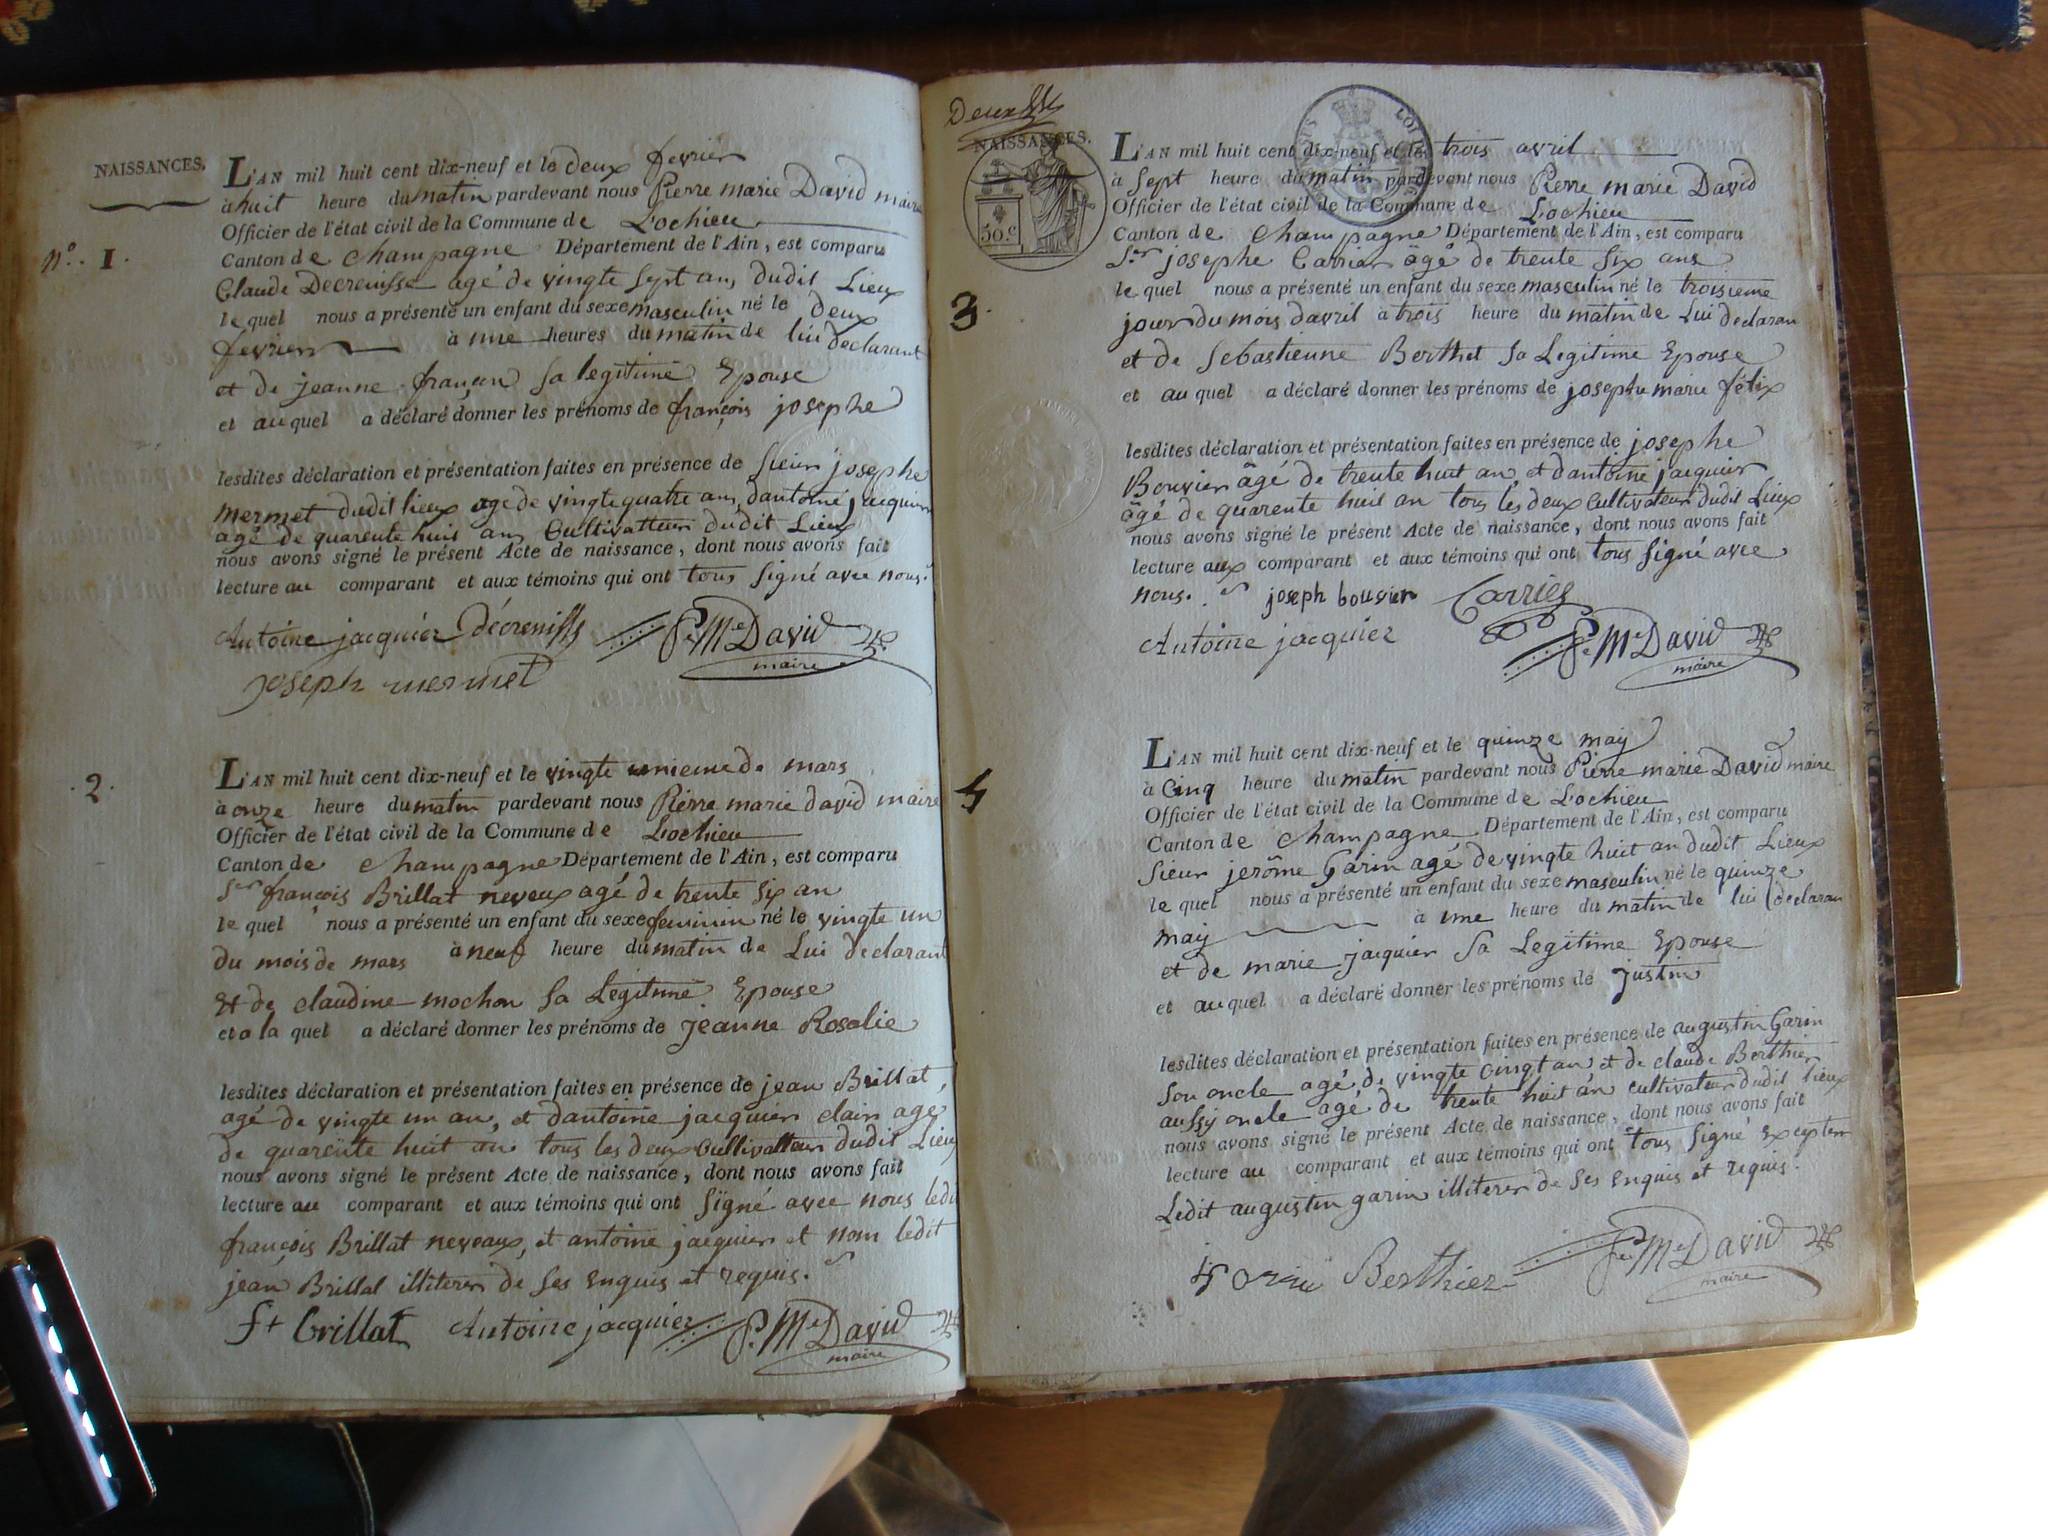 NAISSANCES.
N.o 1.
L'AN mil huit cent dix-neuf et le deux fevrier
à huit heure du matin pardevant nous Pierre marie David maire
Officier de l'état civil de la Commune de Lochieu
Canton de Champagne Département de l'Ain, est comparu
Claude Decrenisse agé de vingte sept ans dudit Lieux
le quel nous a présenté un enfant du sexe masculin né le deux
fevrier à une heures du matin de lui declarant
et de jeanne françon sa legitime Epouse
et au quel a déclaré donner les prénoms de françois josephe
lesdites déclaration et présentation faites en présence de sieur josephe
mermet dudit lieux age de vingte quatre ans, dantoine jacquier
agé de quarente huit ans Cultivatteur dudit Lieux
nous avons signé le présent Acte de naissance, dont nous avons fait
lecture au comparant et aux témoins qui ont tous signé avec nous.
Antoine jacquier Décrenisse P.re M.ie David
maire
joseph mermet
2.
L'AN mil huit cent dix-neuf et le vingte unieme de mars
à onze heure du matin pardevant nous Pierre marie david maire
Officier de l'état civil de la Commune de Lochieu
Canton de Champagne Département de l'Ain, est comparu
S.er françois Brillat neveux agé de trente six an
le quel nous a présenté un enfant du sexe feminin né le vingte un
du mois de mars à neuf heure du matin de Lui declarant
Et de claudine mochon sa Legitime Epouse
et a la quel a déclaré donner les prénoms de jeanne Rosalie
lesdites déclaration et présentation faites en présence de jean Brillat,
agé de vingte un an, et dantoine jacquier clair age
de quarente huit an tous les deux Cultivatteur dudit Lieux
nous avons signé le présent Acte de naissance, dont nous avons fait
lecture au comparant et aux témoins qui ont signé avec nous ledit
françois Brillat neveaux, et antoine jacquier et nom ledit
jean Brillat illiterer de ses enquis et requis.
ft brillat Antoine jacquier P.re M.ie David
maire
Deux
NAISSANCES.
50.c
3.
L'AN mil huit cent dix-neuf et le trois avril
à sept heure du matin pardevant nous Pierre marie David
Officier de l'état civil de la Commune de Lochieu
Canton de Champagne Département de l'Ain, est comparu
S.er josephe Carrier âgé de trente six ans
le quel nous a présenté un enfant du sexe masculin né le troisieme
jour du mois davril à trois heure du matin de Lui declaran
et de Sebastienne Berthet sa Legitime Epouse
et au quel a déclaré donner les prénoms de josephe marie félix
lesdites déclaration et présentation faites en présence de josephe
Bouvier âgé de trente huit an et dantoine jacquier
âgé de quarente huit an tous les deux Cultivateur dudit Lieux
nous avons signé le présent Acte de naissance, dont nous avons fait
lecture aux comparant et aux témoins qui ont tous signé avec
nous. joseph bouvier Carrier
Antoine jacquier P.re M.ie David
maire
4
L'AN mil huit cent dix-neuf et le quinze may
à Cinq heure du matin pardevant nous Pierre marie David maire
Officier de l'état civil de la Commune de Lochieu
Canton de Champagne Département de l'Ain, est comparu
Sieur jerôme Garin agé de vingte huit an dudit Lieux
le quel nous a présenté un enfant du sexe masculin né le quinze
may à une heure du matin de lui declaran
et de marie jaquier sa Legitime Epouse
et au quel a déclaré donner les prénoms de justin
lesdites déclaration et présentation faites en présence de augustin Garin
son oncle agé de vingte cinqt an et de claude Berthier
aussy oncle agé de trente huit an cultivateur dudit lieux
nous avons signé le présent Acte de naissance, dont nous avons fait
lecture au comparant et aux témoins qui ont tous signé excepter
Ledit augustin garin illiterer de ses enquis et requis.
Berthier P.re M.ie David
maire